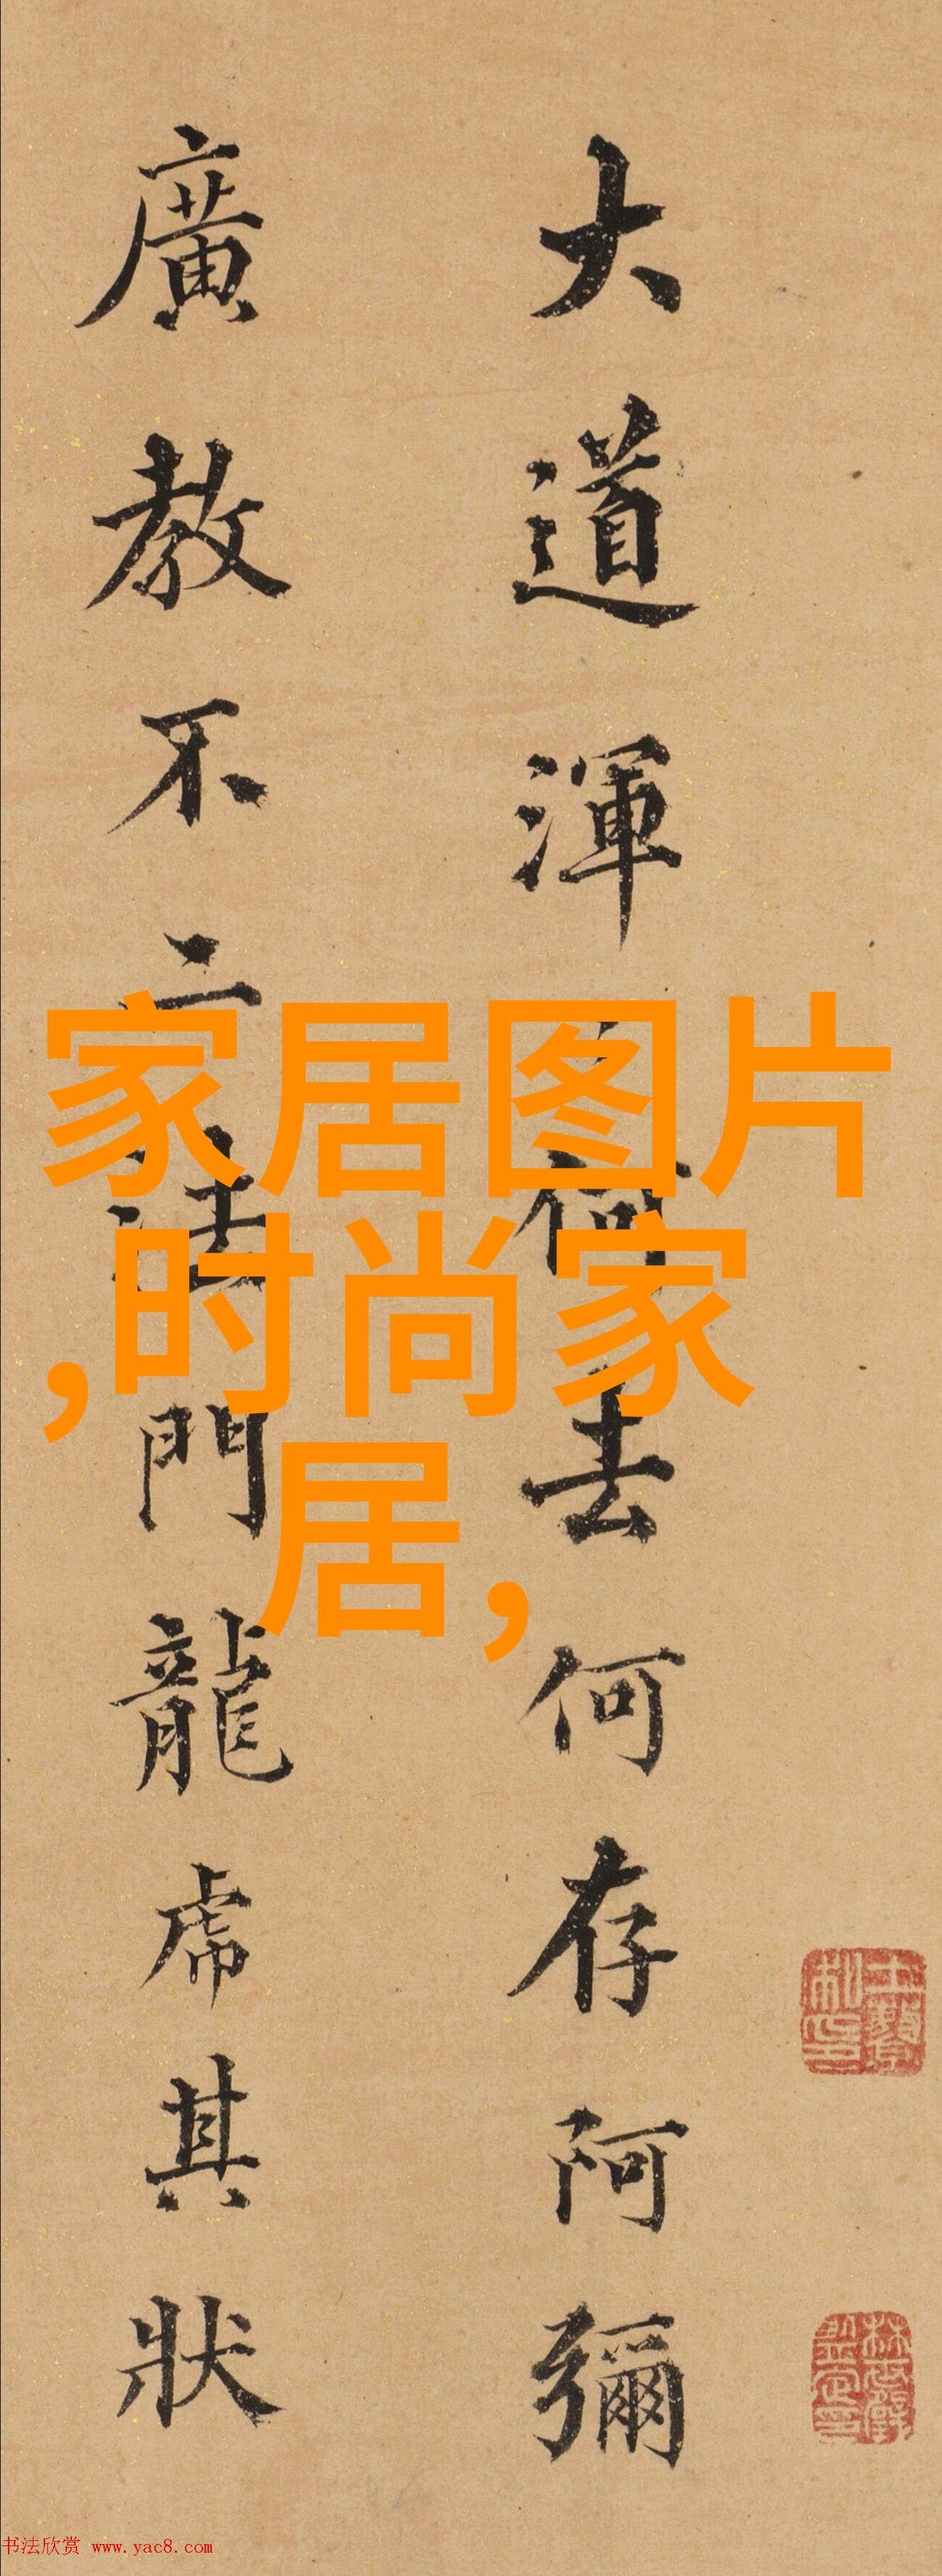 大道渾何去何存阿彌
廣教不二法門龍虎其狀
家居图片
,时尚家
居,
书法欣赏 www.yac8.com